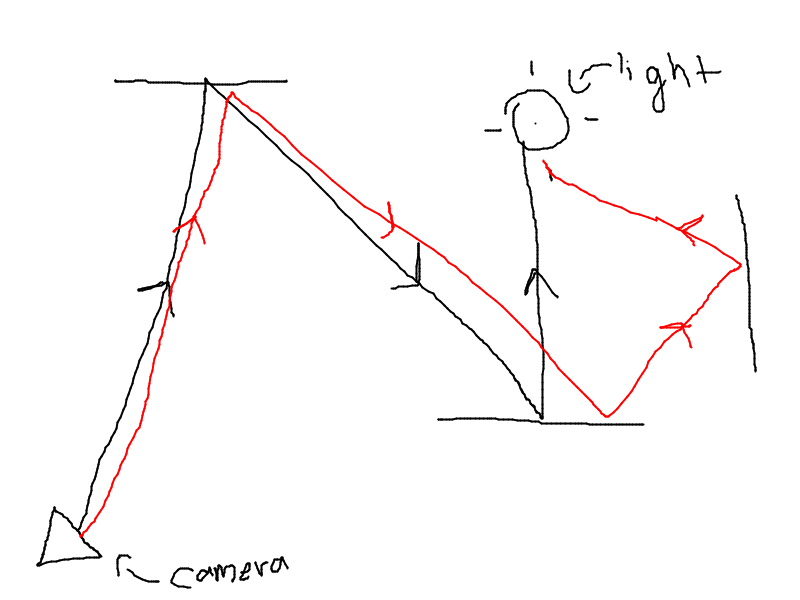 light
camera